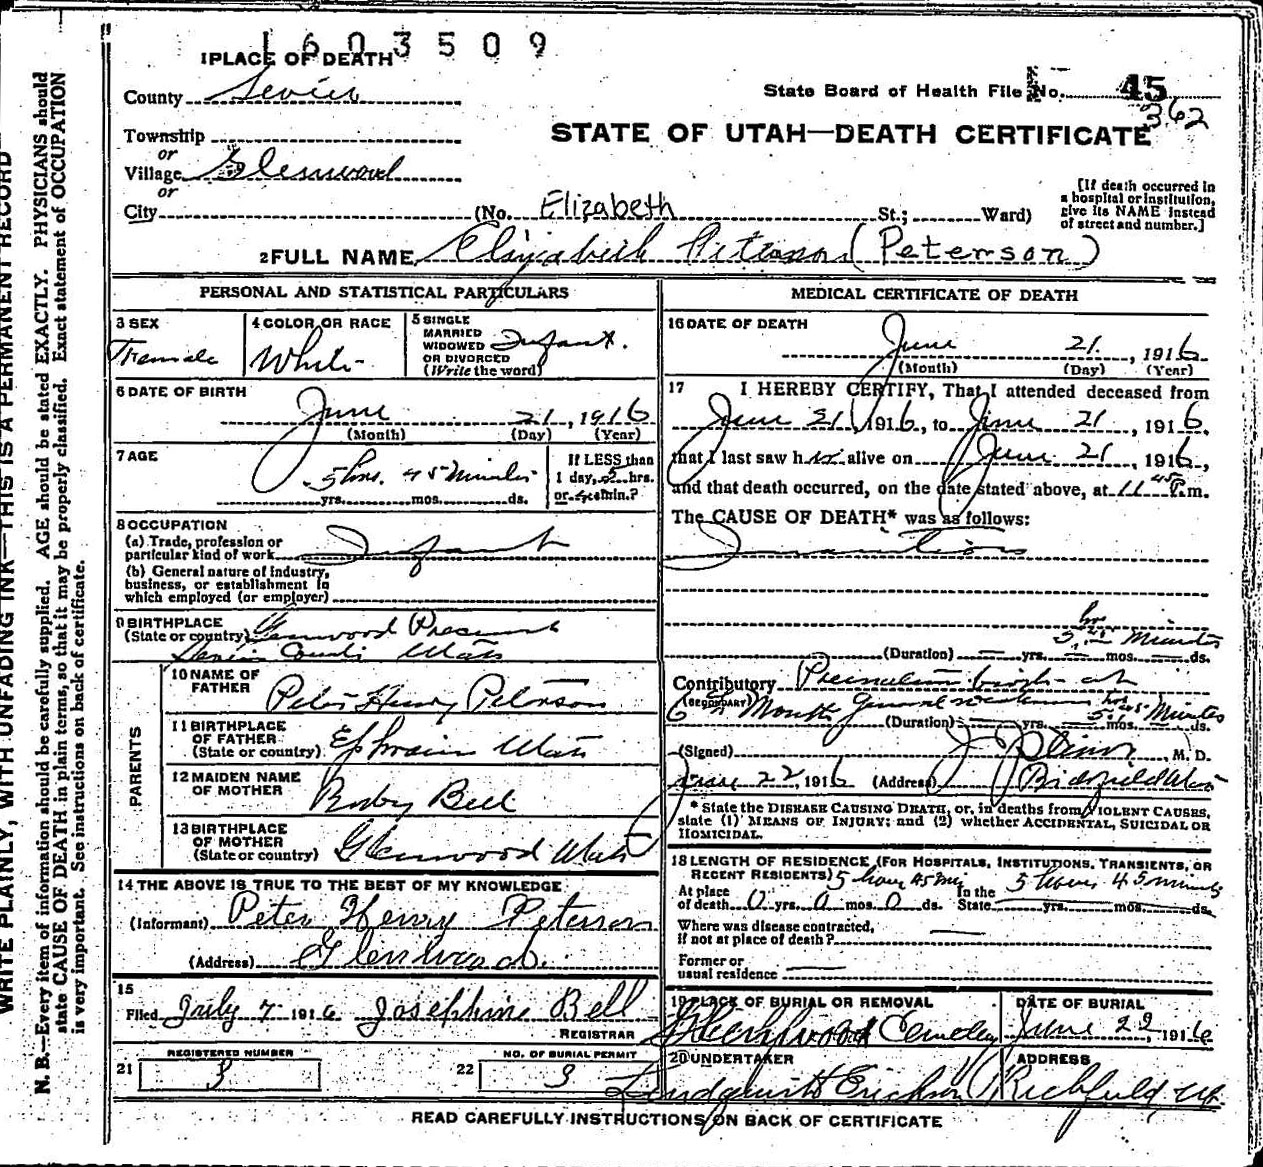 1603509
1 PLACE OF DEATH
County Sevier
State Board of Health File No. 45
362
Township
or
Village Glenwood
or
STATE OF UTAH—DEATH CERTIFICATE
City (No. Elizabeth St.; Ward)
[If death occurred in
a hospital or institution,
give its NAME instead
of street and number.]
2 FULL NAME Elizabeth Peterson (Peterson)
PERSONAL AND STATISTICAL PARTICULARS
3 SEX
Female
4 COLOR OR RACE
White
5 SINGLE
MARRIED
WIDOWED
OR DIVORCED
(Write the word)
Infant.
6 DATE OF BIRTH
June 21, 1916
(Month) (Day) (Year)
7 AGE
5 hrs. 45 Minutes
yrs. mos. ds.
If LESS than
1 day, 5 hrs.
or 45 min.?
8 OCCUPATION
(a) Trade, profession or
particular kind of work Infant
(b) General nature of industry,
business, or establishment in
which employed (or employer)
9 BIRTHPLACE
(State or country) Glenwood Precinct
Sevier County Utah
PARENTS
10 NAME OF
FATHER Peter Henry Peterson
11 BIRTHPLACE
OF FATHER
(State or country) Ephraim Utah
12 MAIDEN NAME
OF MOTHER Ruby Bell
13 BIRTHPLACE
OF MOTHER
(State or country) Glenwood Utah
14 THE ABOVE IS TRUE TO THE BEST OF MY KNOWLEDGE
(Informant) Peter Henry Peterson
(Address) Glenwood.
15
Filed July 7 1916 Josephine Bell
REGISTRAR
21 REGISTERED NUMBER
3
22 NO. OF BURIAL PERMIT
3
MEDICAL CERTIFICATE OF DEATH
16 DATE OF DEATH
June 21, 1916
(Month) (Day) (Year)
17 I HEREBY CERTIFY, That I attended deceased from
June 21, 1916, to June 21, 1916,
that I last saw her alive on June 21, 1916,
and that death occurred, on the date stated above, at 11 45 P.m.
The CAUSE OF DEATH* was as follows:
Inanition
hrs
5 45 Minutes
(Duration) yrs. mos. ds.
Contributory Premature birth at
(SECONDARY) 6 ½ Months General weakness hrs 5 45 Minutes
(Duration) yrs. mos. ds.
(Signed) M. D.
June 22, 1916 (Address) Richfield Utah
* State the DISEASE CAUSING DEATH, or, in deaths from VIOLENT CAUSES,
state (1) MEANS OF INJURY; and (2) whether ACCIDENTAL, SUICIDAL OR
HOMICIDAL.
18 LENGTH OF RESIDENCE (FOR HOSPITALS, INSTITUTIONS, TRANSIENTS, OR
RECENT RESIDENTS) 5 hours 45 min 5 hours 45 minutes
At place In the
of death 0 yrs. 0 mos. 0 ds. State yrs. mos. ds.
Where was disease contracted,
if not at place of death?
Former or
usual residence
19 PLACE OF BURIAL OR REMOVAL
Glenwood Cemetery
DATE OF BURIAL
June 22, 1916
20 UNDERTAKER
ADDRESS
Richfield, Ut.
READ CAREFULLY INSTRUCTIONS ON BACK OF CERTIFICATE
WRITE PLAINLY, WITH UNFADING INK—THIS IS A PERMANENT RECORD
N. B.—Every item of information should be carefully supplied. AGE should be stated EXACTLY. PHYSICIANS should
state CAUSE OF DEATH in plain terms, so that it may be properly classified. Exact statement of OCCUPATION
is very important. See instructions on back of certificate.